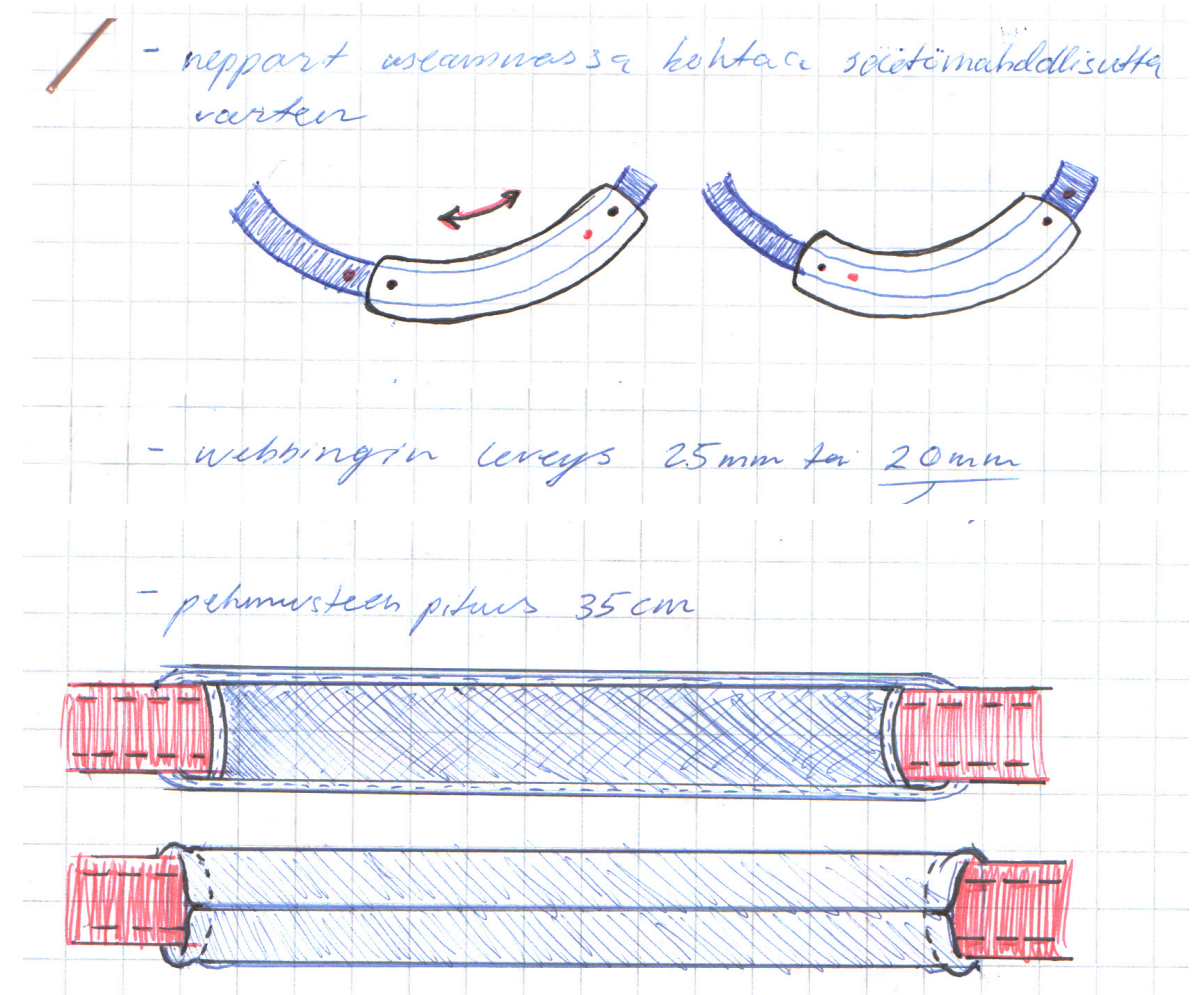 - nepparit useammassa kohtaa säätömahdollisutta
varten
- webbingin leveys 25mm tai 20mm
- pehmusteen pituus 35cm